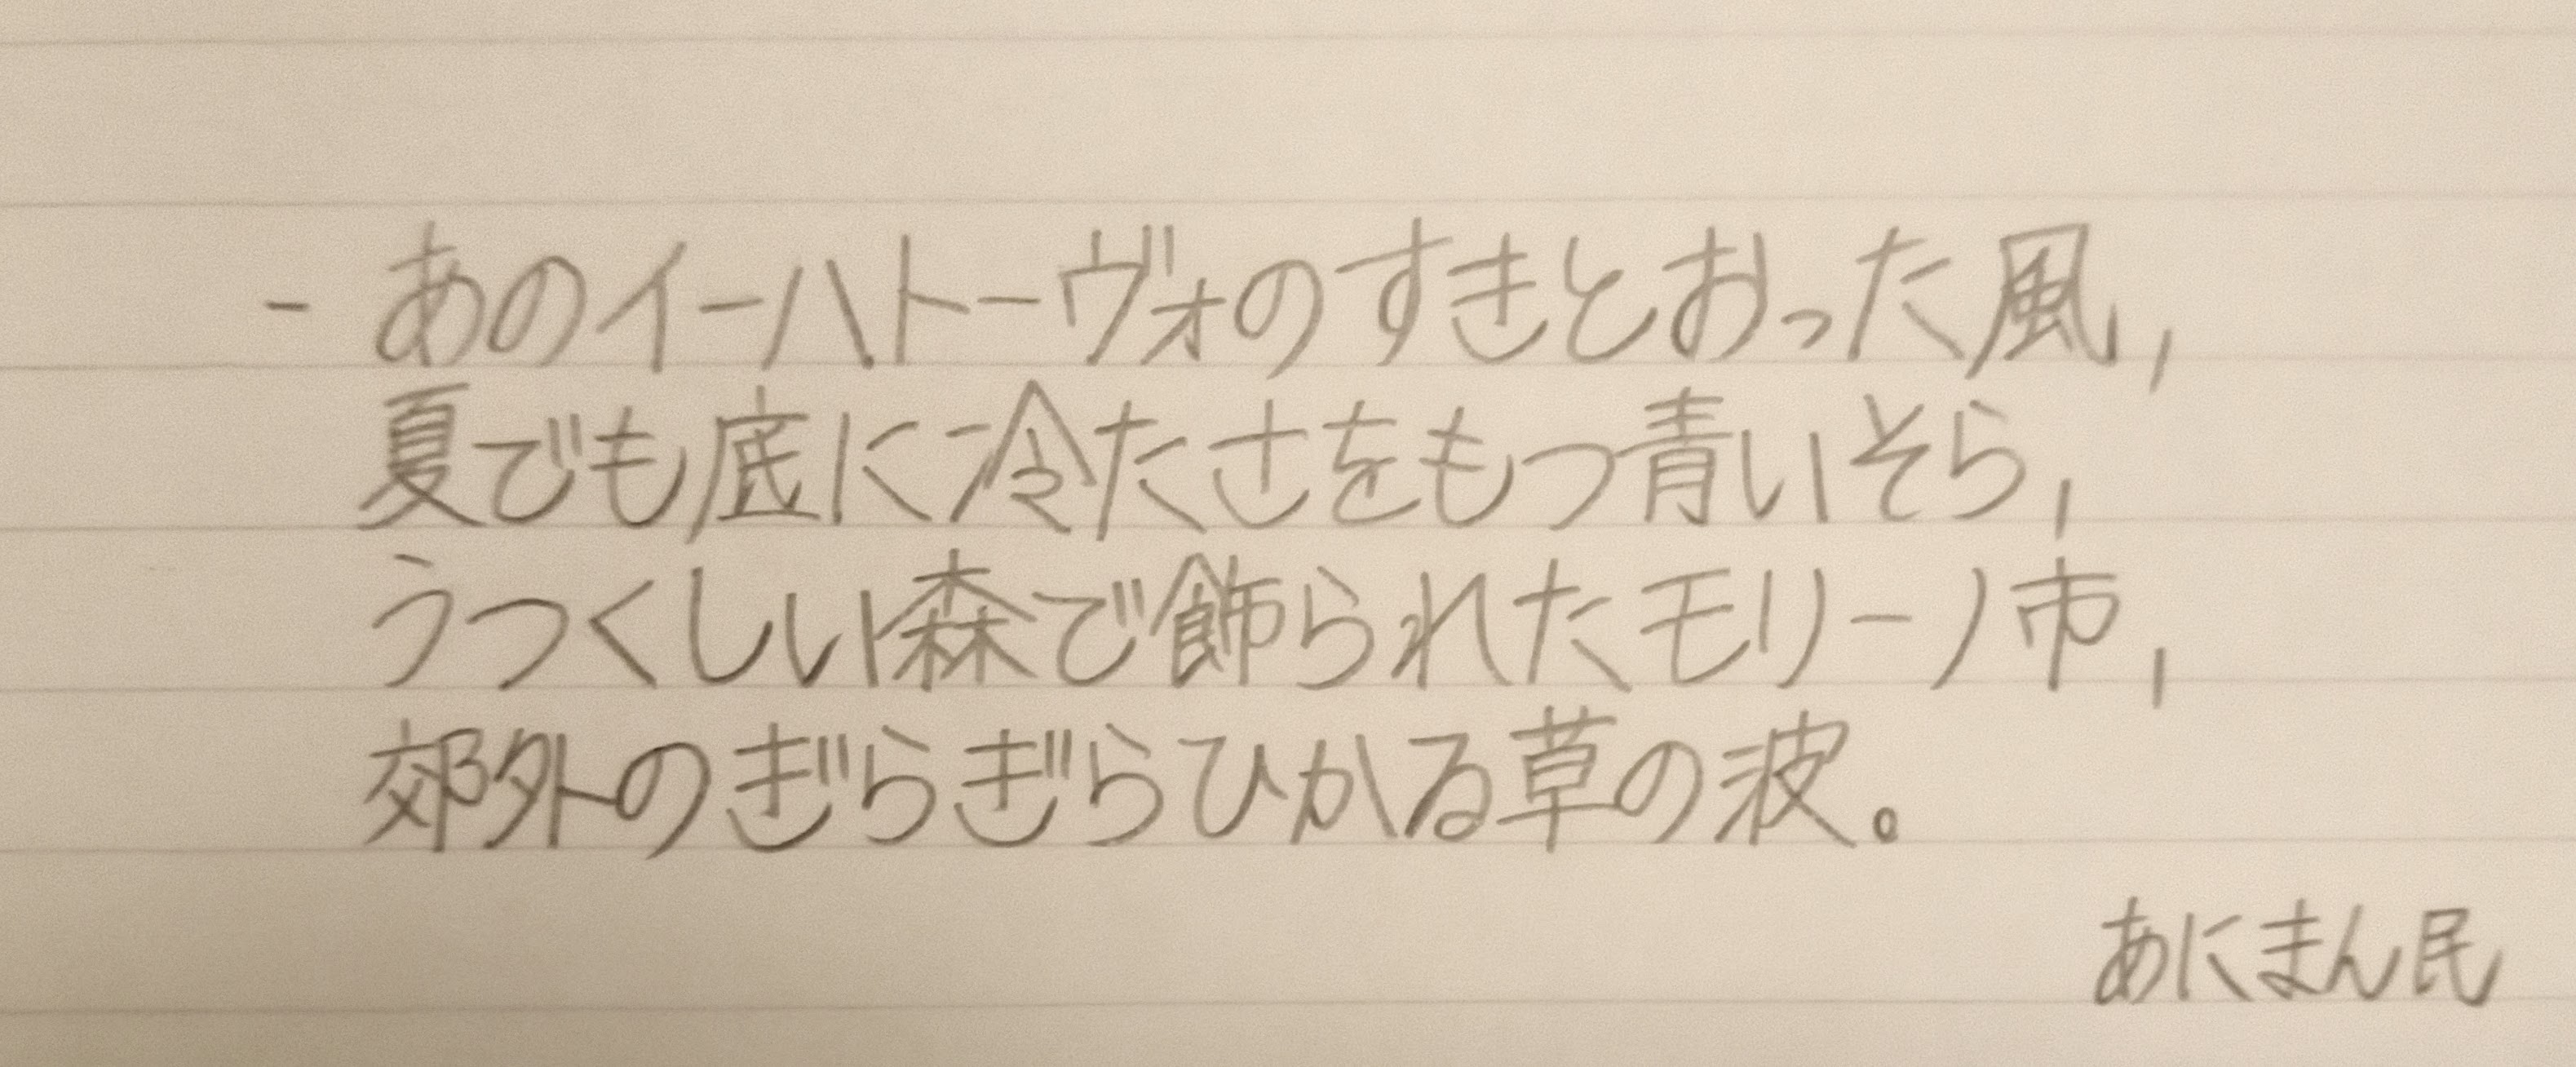 - あのイーハトーヴォのすきとおった風,
夏でも底に冷たさをもつ青いそら,
うつくしい森で飾られたモリーノ市,
郊外のぎらぎらひかる草の波。
あにまん民